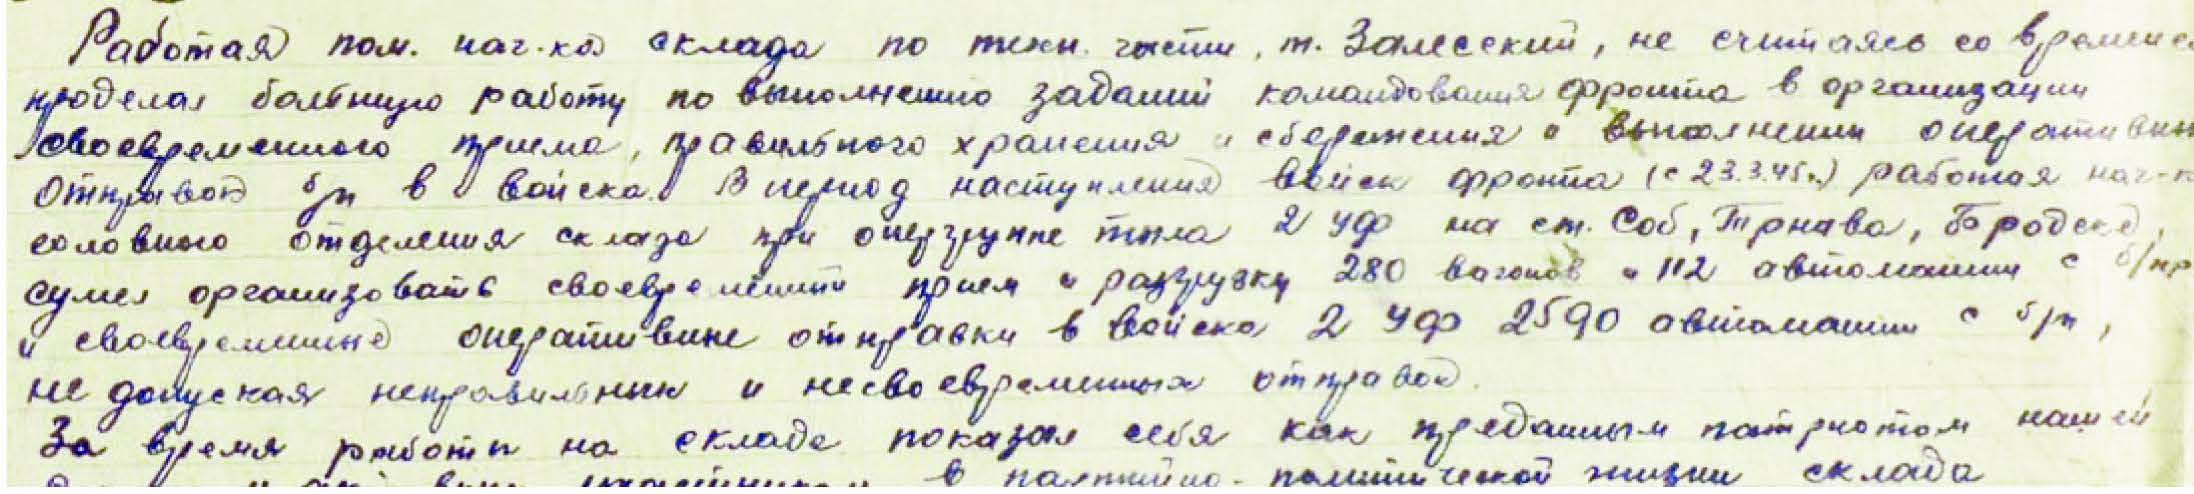 Работая пом. нач-ка склада по техн. части, т. Залесский, не считаясь со времене
проделал большую работу по выполнению заданий командования фронта в организации
своевременного приема, правильного хранения и сбережения и выполнении оперативн
отправок б/п в войска. В период наступления войск фронта (с 23.3.45г.) работая нач-к
головного отделения склада при опергруппе тыла 2 УФ на ст. Соб, Трнава, Бродске,
сумел организовать своевременный прием и разгрузку 280 вагонов и 112 автомашин с б/пр
и своевременные оперативные отправки в войска 2 УФ 2590 автомашин с б/п,
не допуская неправильных и несвоевременных отправок.
За время работы на складе показал себя как преданным патриотом нашей
участником в партийно-политической жизни склада